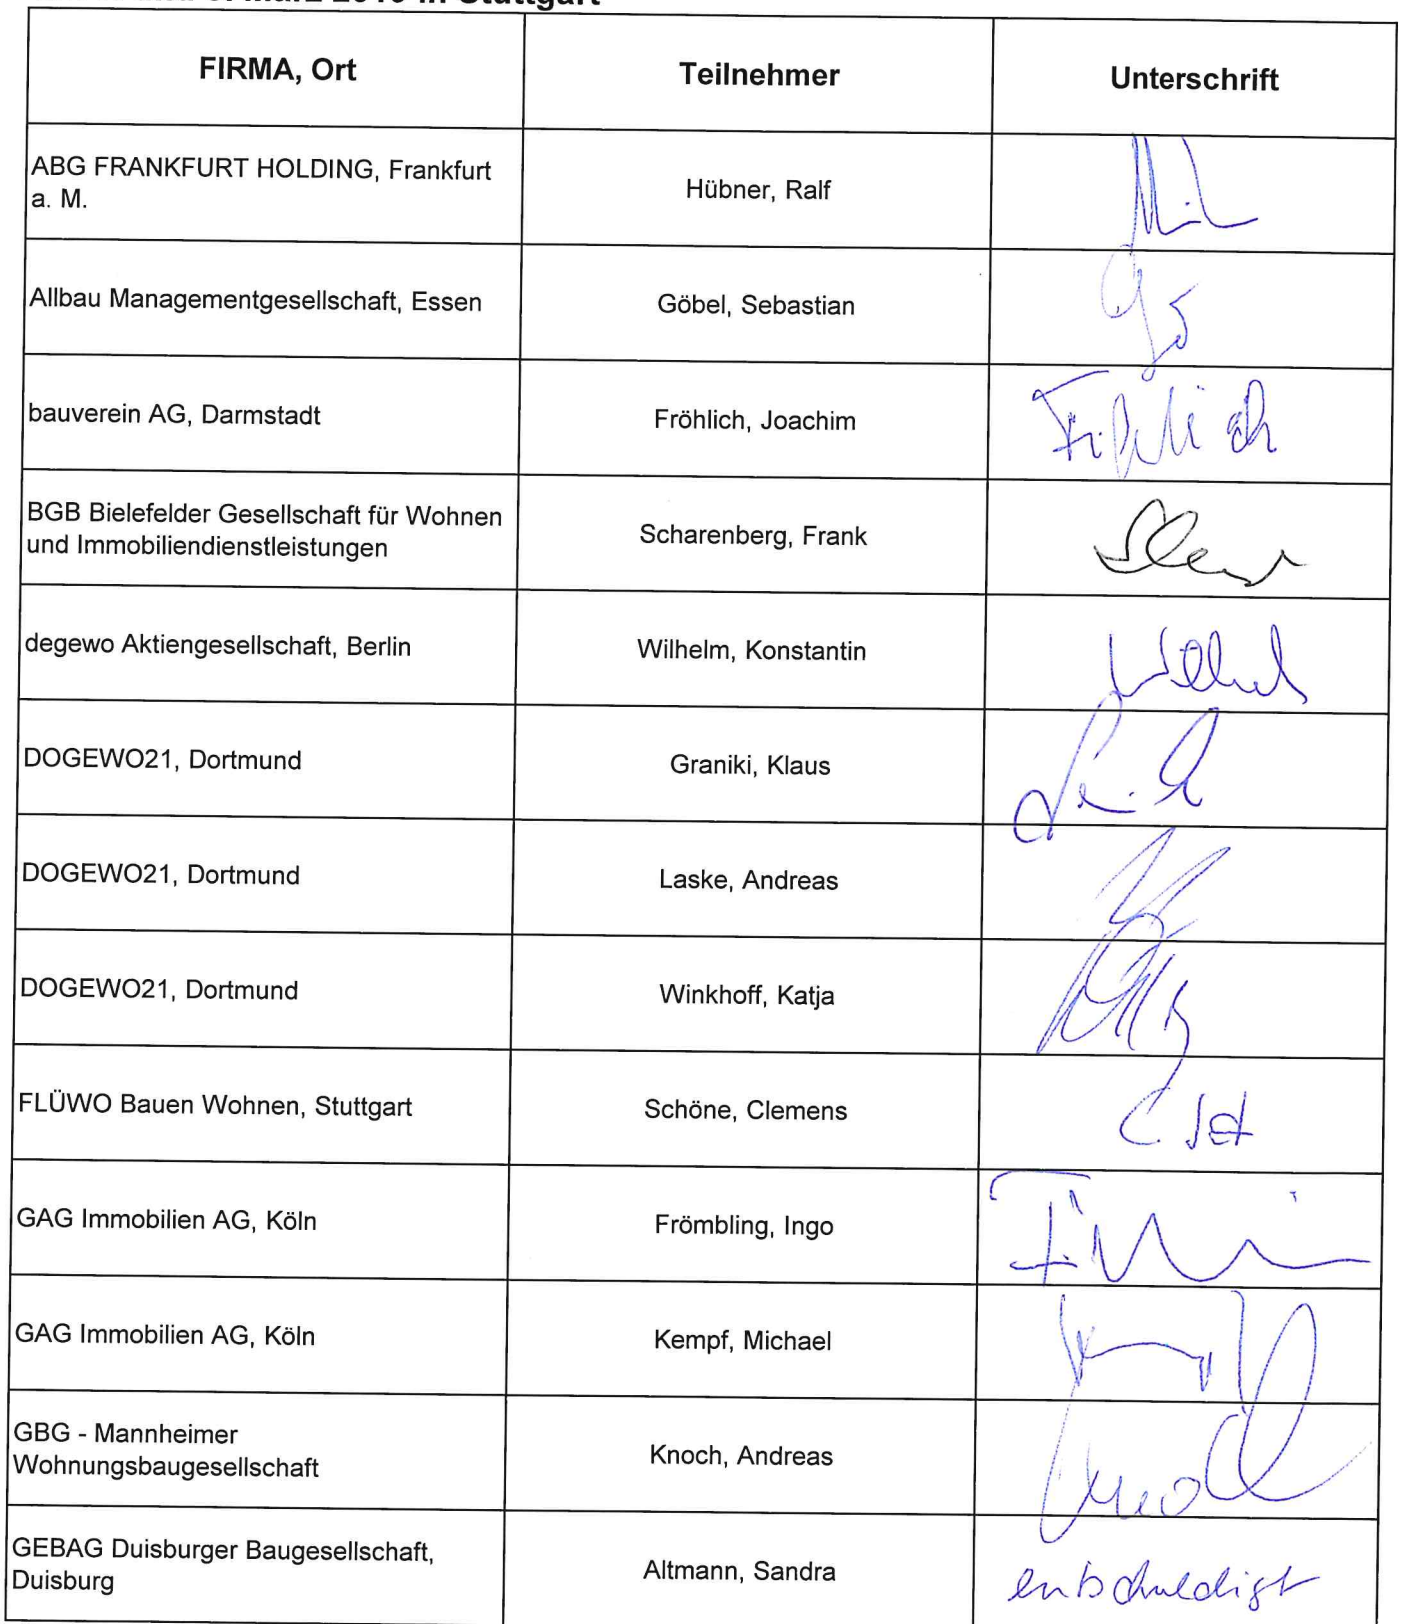 FIRMA, Ort Teilnehmer Unterschrift
ABG FRANKFURT HOLDING, Frankfurt
a. M.
Hübner, Ralf
Allbau Managementgesellschaft, Essen Göbel, Sebastian
bauverein AG, Darmstadt Fröhlich, Joachim Fröhlich
BGB Bielefelder Gesellschaft für Wohnen
und Immobiliendienstleistungen
Scharenberg, Frank
degewo Aktiengesellschaft, Berlin Wilhelm, Konstantin
DOGEWO21, Dortmund Graniki, Klaus
DOGEWO21, Dortmund Laske, Andreas
DOGEWO21, Dortmund Winkhoff, Katja
FLÜWO Bauen Wohnen, Stuttgart Schöne, Clemens
GAG Immobilien AG, Köln Frömbling, Ingo
GAG Immobilien AG, Köln Kempf, Michael
GBG - Mannheimer
Wohnungsbaugesellschaft
Knoch, Andreas
GEBAG Duisburger Baugesellschaft,
Duisburg
Altmann, Sandra entschuldigt